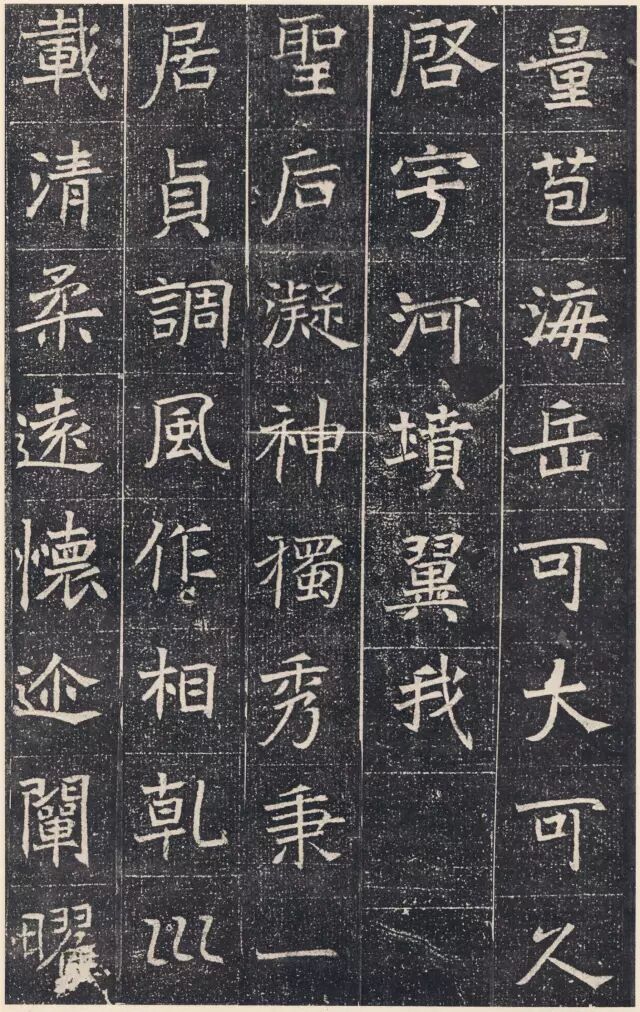 量苞海岳可大可久
啓宇河墳翼我
聖后凝神獨秀秉一
居貞調風作相乹巛
載清柔遠懷迩闡曜